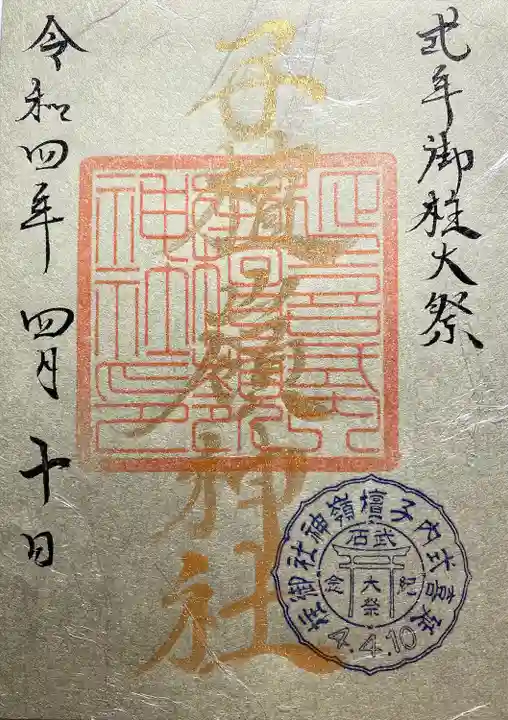 式年御柱大祭
子檀嶺神社
令和四年 四月 十日
延喜式内子檀嶺神社御柱
武石
大祭
紀念
4.4.10